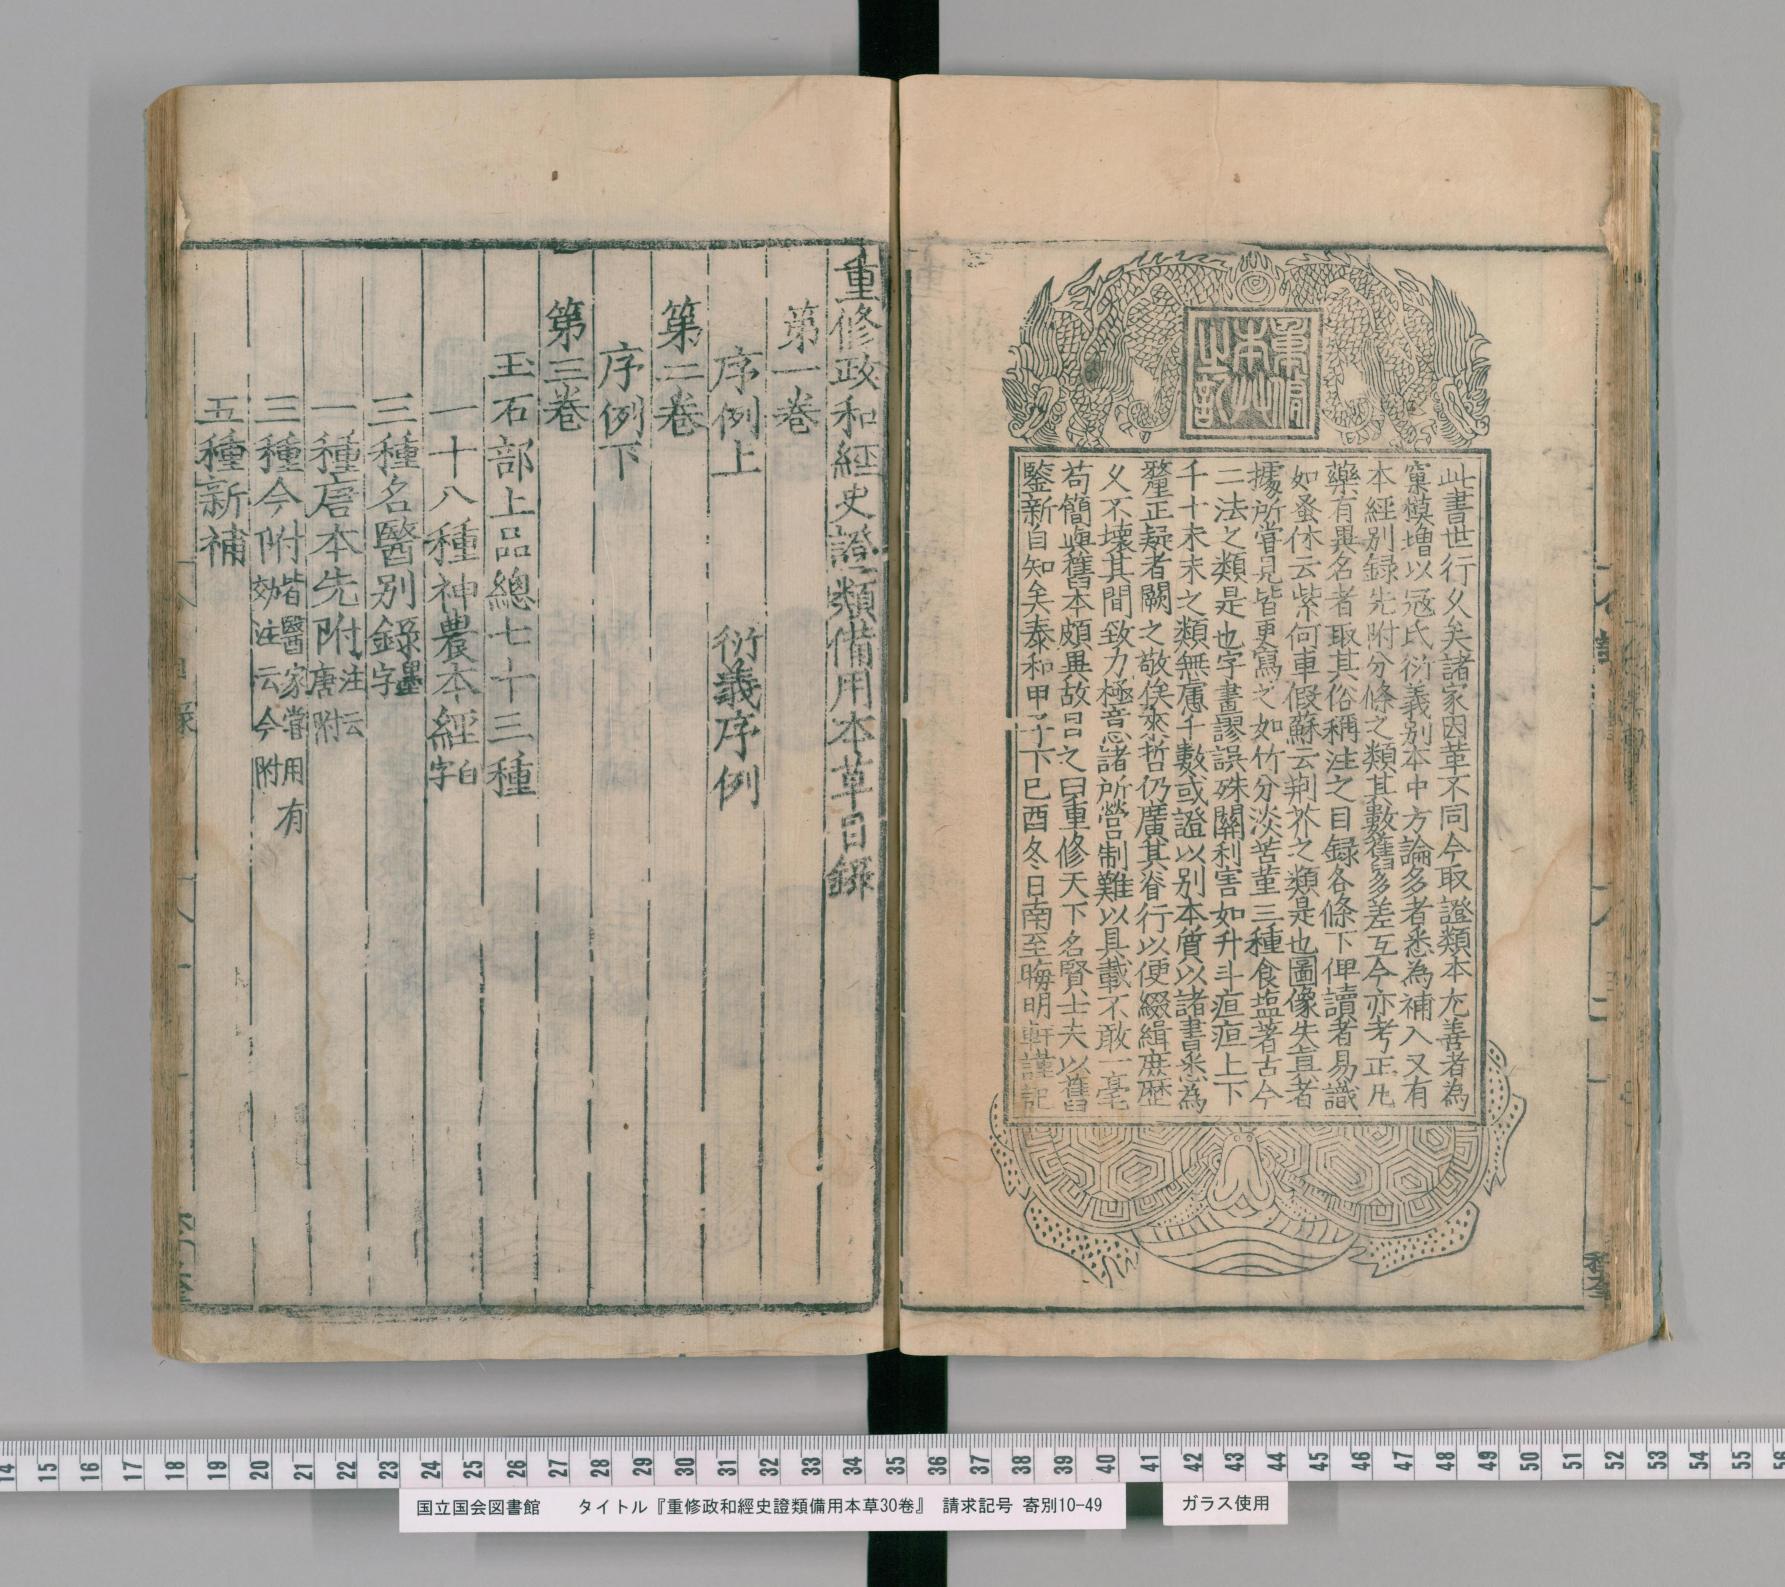 重修
本草
之記
此書世行久矣諸家因革不同今取證類本尤善者為
窠模增以寇氏衍義別本中方論多者悉為補入又有
本經別録先附分條之類其數舊多差互今亦考正凡
藥有異名者取其俗稱注之目録各條下俾讀者易識
如蚤休云紫何車假蘇云荆芥之類是也圖像失真者
據所嘗見皆更寫之如竹分淡苦菫三種食盐著古今
二法之類是也字畫謬誤殊關利害如升斗疸疽上下
千十未末之類無慮千數或證以別本質以諸書悉為
釐正疑者闕之敬俟來哲仍廣其脊行以便綴緝庶歴
久不壞其間致力極意諸所營制難以具載不敢一毫
苟簡與舊本頗異故目之曰重修天下名賢士夫以舊
鑒新自知矣泰和甲子下己酉冬日南至晦明軒謹記
重修政和經史證類備用本草目錄
第一卷
序例上 衍義序例
第二卷
序例下
第三卷
玉石部上品總七十三種
一十八種神農本經白字
三種名醫别錄墨字
一種唐本先附注云唐附
三種今附皆醫家嘗用有効注云今附
五種新補
14 15 16 17 18 19 20 21 22 23 24 25 26 27 28 29 30 31 32 33 34 35 36 37 38 39 40 41 42 43 44 45 46 47 48 49 50 51 52 53 54 55 56
国立国会図書館 タイトル『重修政和經史證類備用本草30卷』 請求記号 寄別10-49
ガラス使用